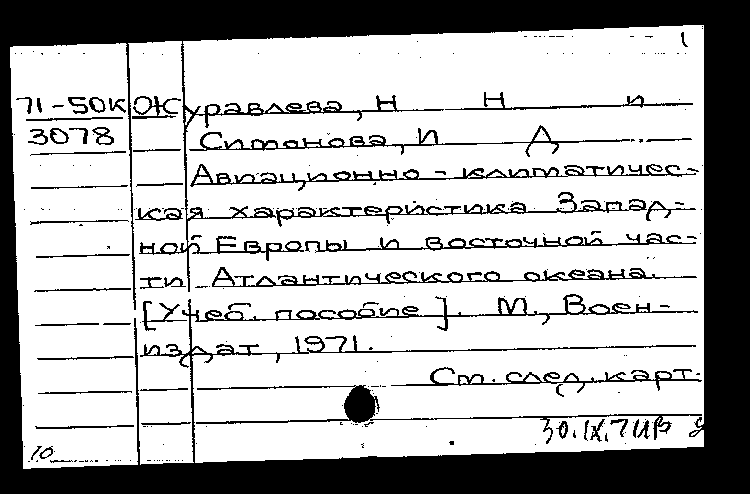 1
71-50К Журавлева, Н Н и
3078 Ситонова, И Д
Авиационно-климатичес-
кая характеристика Запад-
ной Европы и восточной час-
ти Атлантического океана.
[Учеб. пособие]. М., Воен-
издат, 1971.
См. след. карт.
30.IX.71
10